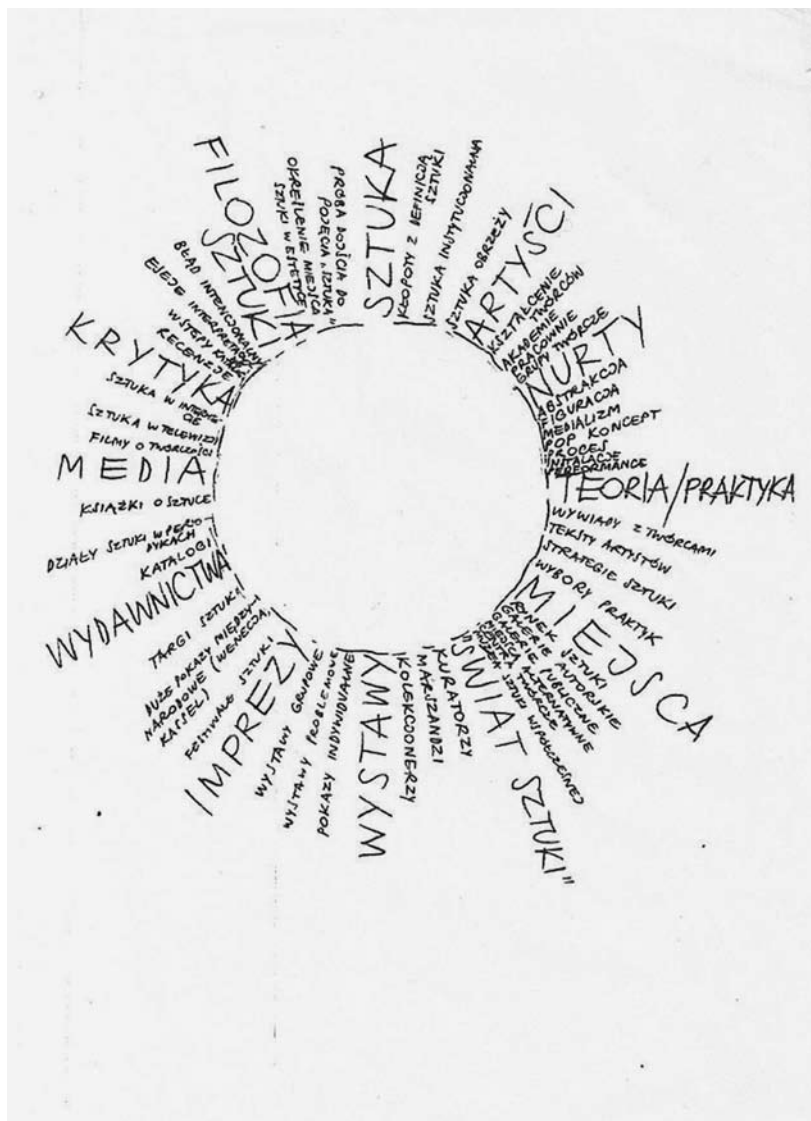 SZTUKA
KŁOPOTY Z DEFINICJĄ
SZTUKI
SZTUKA INSTYTUCJONALNA
SZTUKA OBRZEŻY
ARTYŚCI
KSZTAŁCENIE
TWÓRCÓW
AKADEMIE
PRACOWNIE
GRUPY TWÓRCZE
NURTY
ABSTRAKCJA
FIGURACJA
MEDIALIZM
POP KONCEPT
PROCES
INSTALACJE
PERFORMANCE
TEORIA/PRAKTYKA
WYWIADY Z TWÓRCAMI
TEKSTY ARTYSTÓW
STRATEGIE SZTUKI
WYBORY PRAKTYK
MIEJSCA
RYNEK SZTUKI
GALERIE AUTORSKIE
GALERIE PUBLICZNE
MIEJSCA ALTERNATYWNE
CENTRA TWÓRCZE
MUZEA SZTUKI WSPÓŁCZESNEJ
"ŚWIAT SZTUKI"
KURATORZY
MARSZANDZI
KOLEKCJONERZY
WYSTAWY
POKAZY INDYWIDUALNE
WYSTAWY PROBLEMOWE
WYSTAWY GRUPOWE
IMPREZY
FESTIWALE SZTUKI
DUŻE POKAZY MIĘDZY-
NARODOWE (WENECJA,
KASSEL)
TARGI SZTUKI
WYDAWNICTWA
KATALOGI
DZIAŁY SZTUKI W PERIO
DYKACH
KSIĄŻKI O SZTUCE
MEDIA
FILMY O TWÓRCZOŚCI
SZTUKA W TELEWIZJI
SZTUKA W INTERNE-
CIE
KRYTYKA
RECENZJE
WSTĘPY KATAL.
ESEJE INTERPRETACJE
BŁĄD INTENCJONALNY
FILOZOFIA
SZTUKI
OKREŚLENIE MIEJSCA
SZTUKI W ESTETYCE
PRÓBA DOJŚCIA DO
POJĘCIA „SZTUKA"